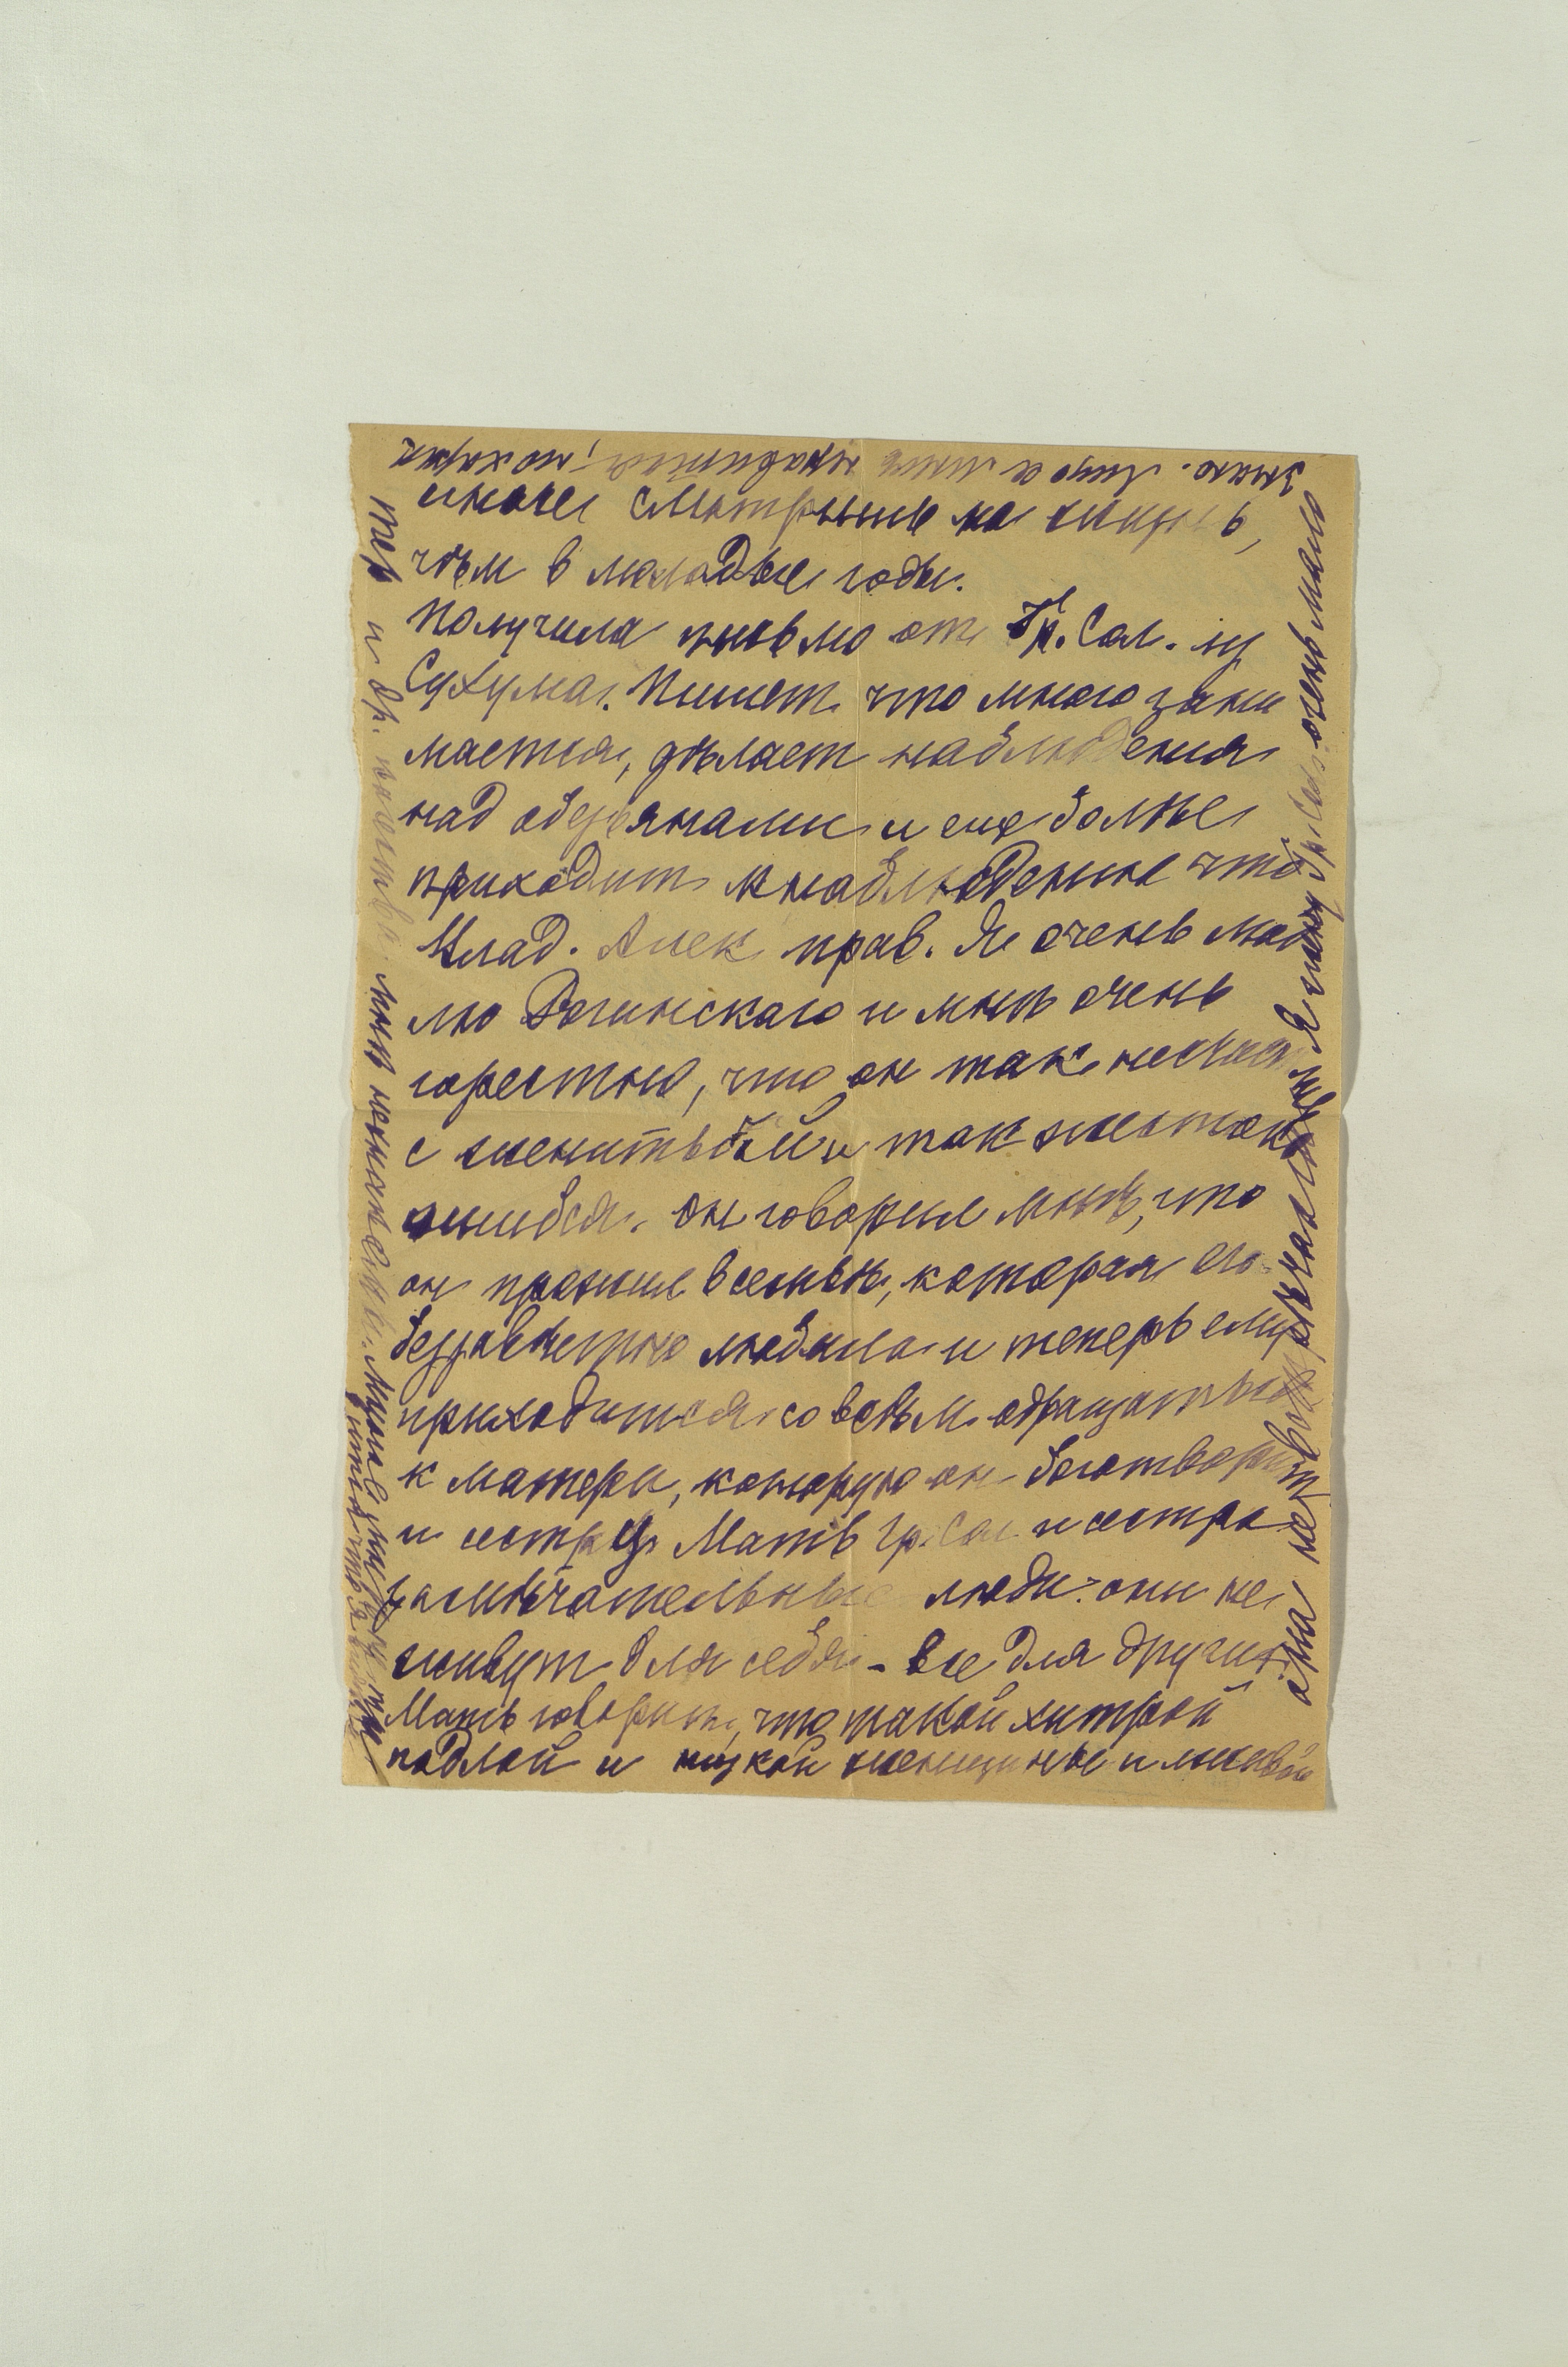 иначе смотришь на жизнь,
чѣм в молодые годы.
Получила письмо от Гр. Сол. из
Сухума. Пишет что много зани
мается, дѣлает наблюдения
над обезьянами и еще болѣе
приходит к наблюдению что
Влад. Алек прав. Я очень люб
лю Рогинскаго и мнѣ очень
горестно, что он так несчаст
с женитьбой и так жестоко
ошибся. Он говорил мнѣ, что
он прожил в семьѣ, которая его
беззавѣтно любила и теперь ему
приходится со всѣм обращаться
к матери, которую он боготворит
и сестрѣ. Мать Гр. Сол. и сестра
замѣчательные люди: они не
живут для себя - все для других.
Мать говорит, что такой хитрой
подлой и низкой женщины и лживой
она не встрѣчала Я пишу Гр. Сол. очень мало
знаю. Лицо а мне нравится,
и др. мнѣ